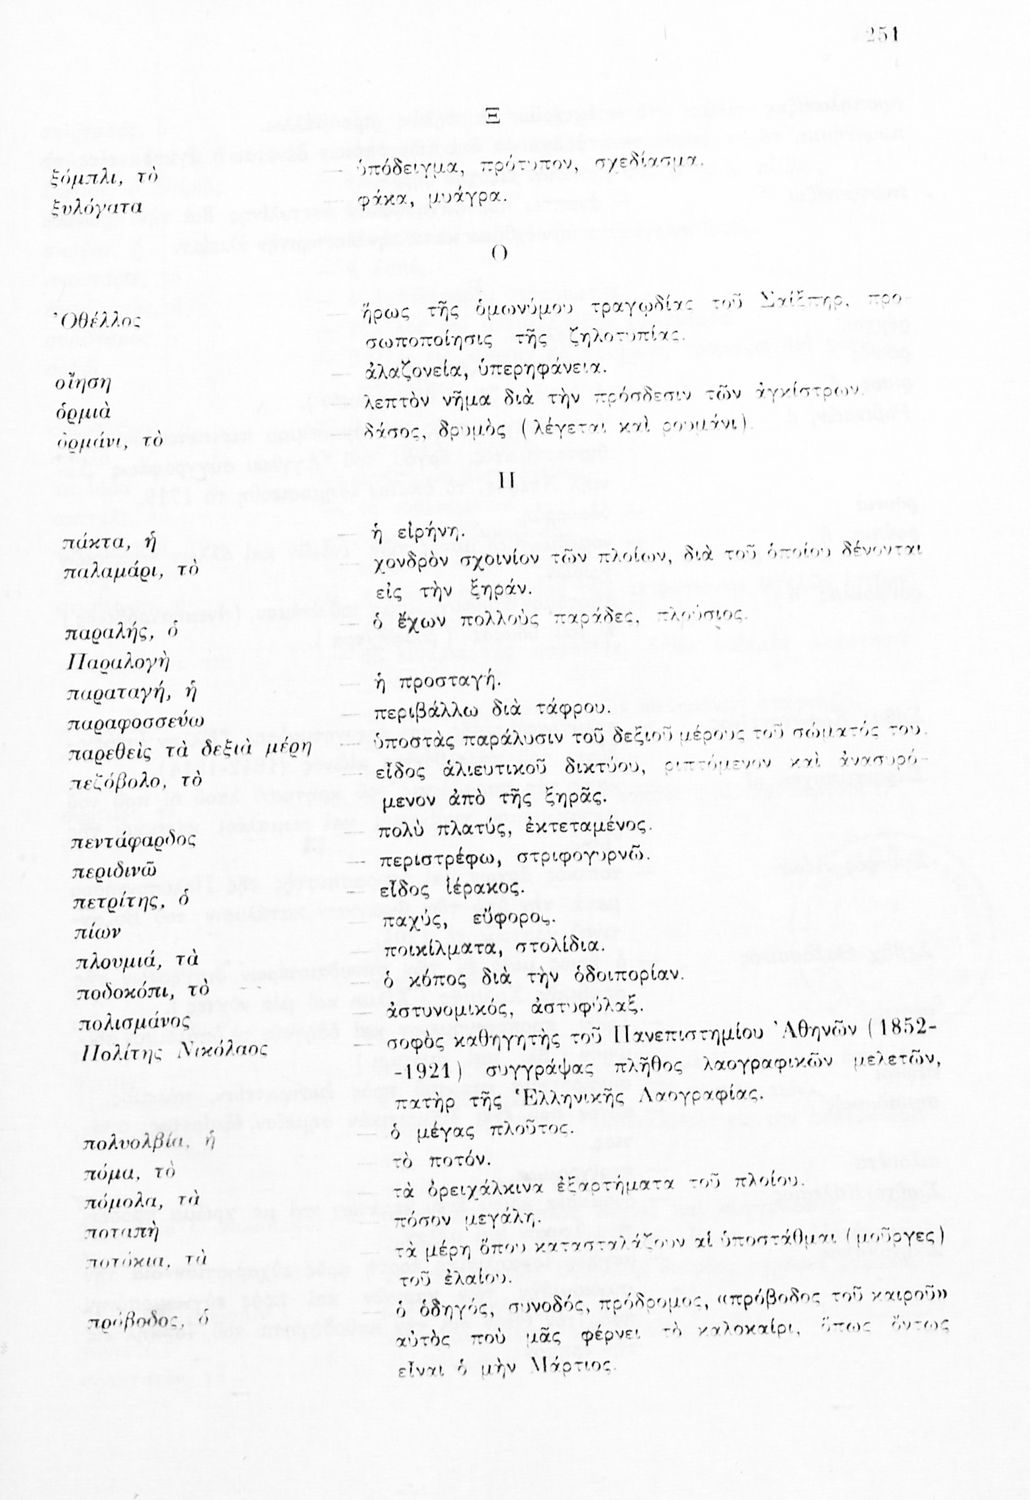 251
Ξ
ξόμπλι, τὸ — ὑπόδειγμα, πρότυπον, σχεδίασμα.
ξυλόγατα — φάκα, μυάγρα.
Ο
Ὀθέλλος — ἥρως τῆς ὁμωνύμου τραγῳδίας τοῦ Σαίξπηρ, προ-
σωποποίησις τῆς ζηλοτυπίας.
οἴηση — ἀλαζονεία, ὑπερηφάνεια.
ὁρμιὰ — λεπτὸν νῆμα διὰ τὴν πρόσδεσιν τῶν ἀγκίστρων.
ὀρμάνι, τὸ — δάσος, δρυμὸς (λέγεται καὶ ρουμάνι).
Π
πάκτα, ἡ — ἡ εἰρήνη.
παλαμάρι, τὸ — χονδρὸν σχοινίον τῶν πλοίων, διὰ τοῦ ὁποίου δένονται
εἰς τὴν ξηράν.
παραλής, ὁ — ὁ ἔχων πολλοὺς παράδες, πλούσιος.
Παραλογὴ
παραταγή, ἡ — ἡ προσταγή.
παραφοσσεύω — περιβάλλω διὰ τάφρου.
παρεθεὶς τὰ δεξιὰ μέρη — ὑποστὰς παράλυσιν τοῦ δεξιοῦ μέρους τοῦ σώματός του.
πεζόβολο, τὸ — εἶδος ἁλιευτικοῦ δικτύου, ριπτόμενον καὶ ἀνασυρό-
μενον ἀπὸ τῆς ξηρᾶς.
πεντάφαρδος — πολὺ πλατύς, ἐκτεταμένος.
περιδινῶ — περιστρέφω, στριφογυρνῶ.
πετρίτης, ὁ — εἶδος ἱέρακος.
πίων — παχύς, εὔφορος.
πλουμιά, τὰ — ποικίλματα, στολίδια.
ποδοκόπι, τὸ — ὁ κόπος διὰ τὴν ὁδοιπορίαν.
πολισμάνος — ἀστυνομικός, ἀστυφύλαξ.
Πολίτης Νικόλαος — σοφὸς καθηγητὴς τοῦ Πανεπιστημίου Ἀθηνῶν (1852-
-1921) συγγράψας πλῆθος λαογραφικῶν μελετῶν,
πατὴρ τῆς Ἑλληνικῆς Λαογραφίας.
πολυολβία, ἡ — ὁ μέγας πλοῦτος.
πόμα, τὸ — τὸ ποτόν.
πόμολα, τὰ — τὰ ὀρειχάλκινα ἐξαρτήματα τοῦ πλοίου.
ποταπὴ — πόσον μεγάλη.
ποτόκια, τὰ — τὰ μέρη ὅπου κατασταλάζουν αἱ ὑποστάθμαι (μοῦργες)
τοῦ ἐλαίου.
πρόβοδος, ὁ — ὁ ὁδηγός, συνοδός, πρόδρομος, «πρόβοδος τοῦ καιροῦ»
αὐτὸς ποὺ μᾶς φέρνει τὸ καλοκαίρι, ὅπως ὄντως
εἶναι ὁ μὴν Μάρτιος.